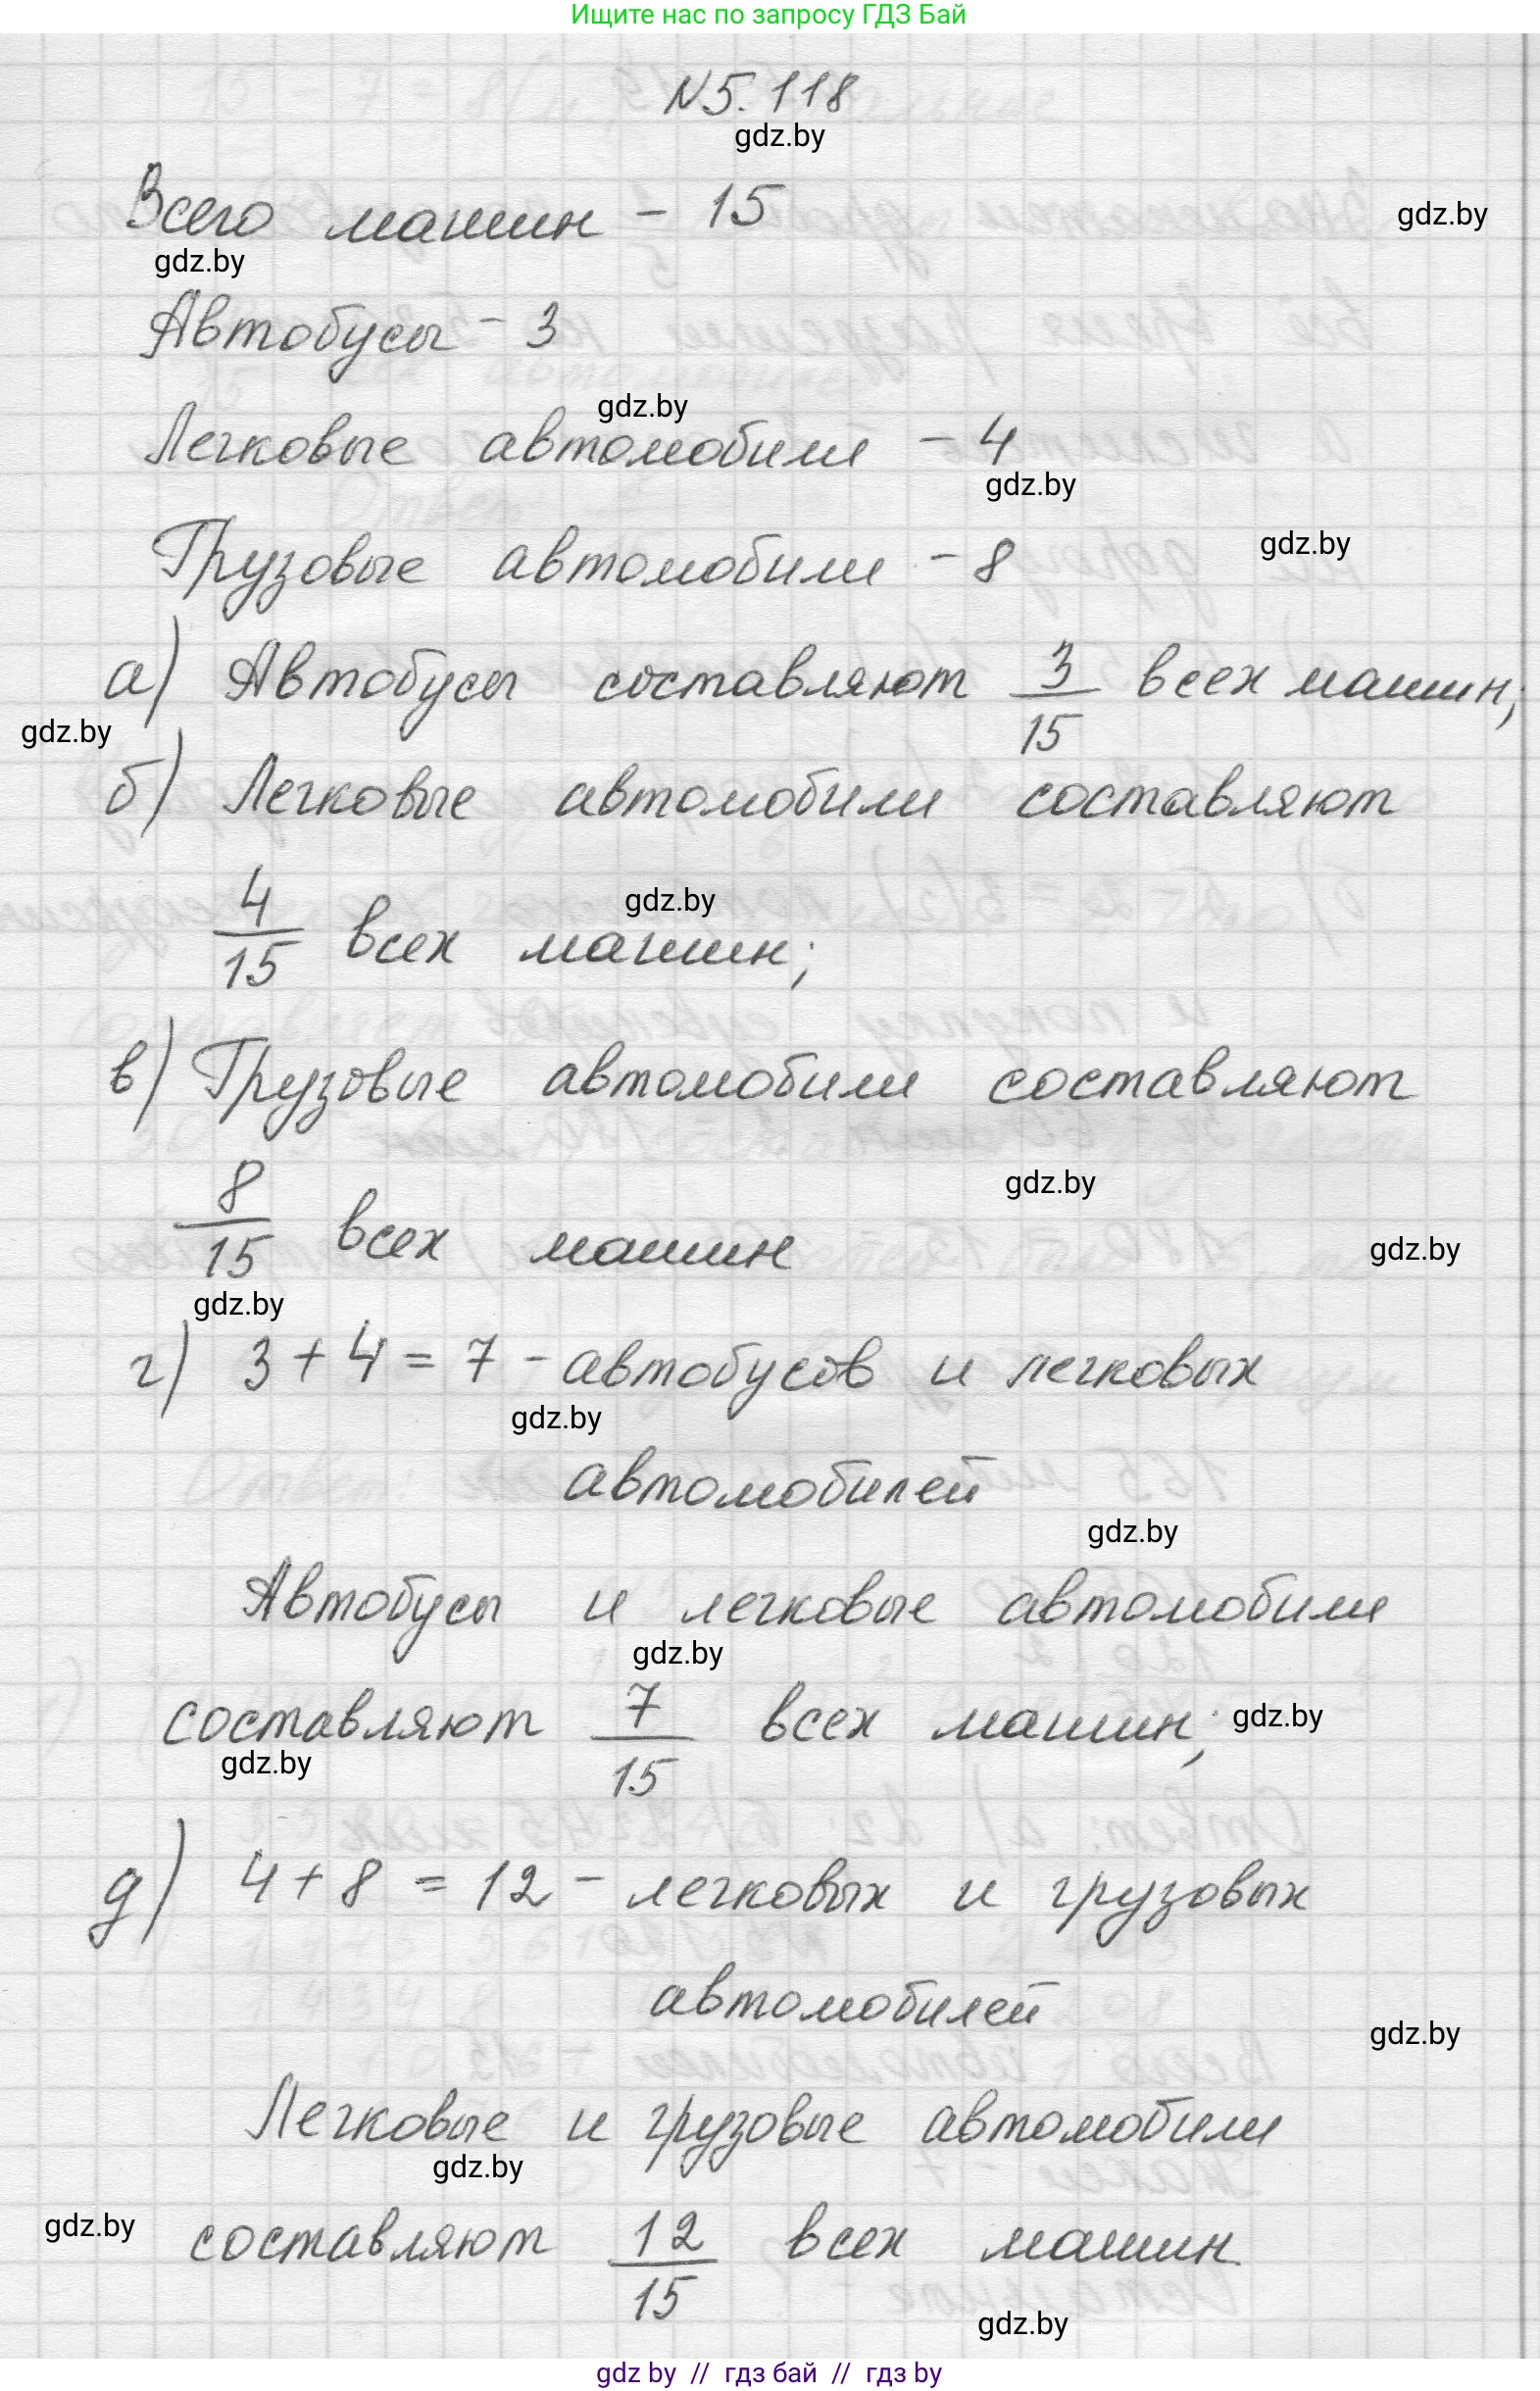 Ищите нас по запросу ГДЗ Бай
N5.118
gdz.by
Всего машин - 15
gdz.by
gdz.by
Автобусы - 3
gdz.by
Легковые автомобили - 4
gdz.by
Грузовые автомобили - 8
gdz.by
а) Автобусы составляют 3/15 всех машин;
gdz.by
б) Легковые автомобили составляют
gdz.by
4/15 всех машин;
в) Грузовые автомобили составляют
gdz.by
8/15 всех машин
gdz.by
gdz.by
г) 3 + 4 = 7 - автобусов и легковых
gdz.by
автомобилей
gdz.by
Автобусы и легковые автомобили
gdz.by
составляют 7/15 всех машин;
gdz.by
gdz.by
д) 4 + 8 = 12 - легковых и грузовых
автомобилей
gdz.by
Легковые и грузовые автомобили
gdz.by
gdz.by
составляют 12/15 всех машин
gdz.by
gdz by // гдз бай // гдз by